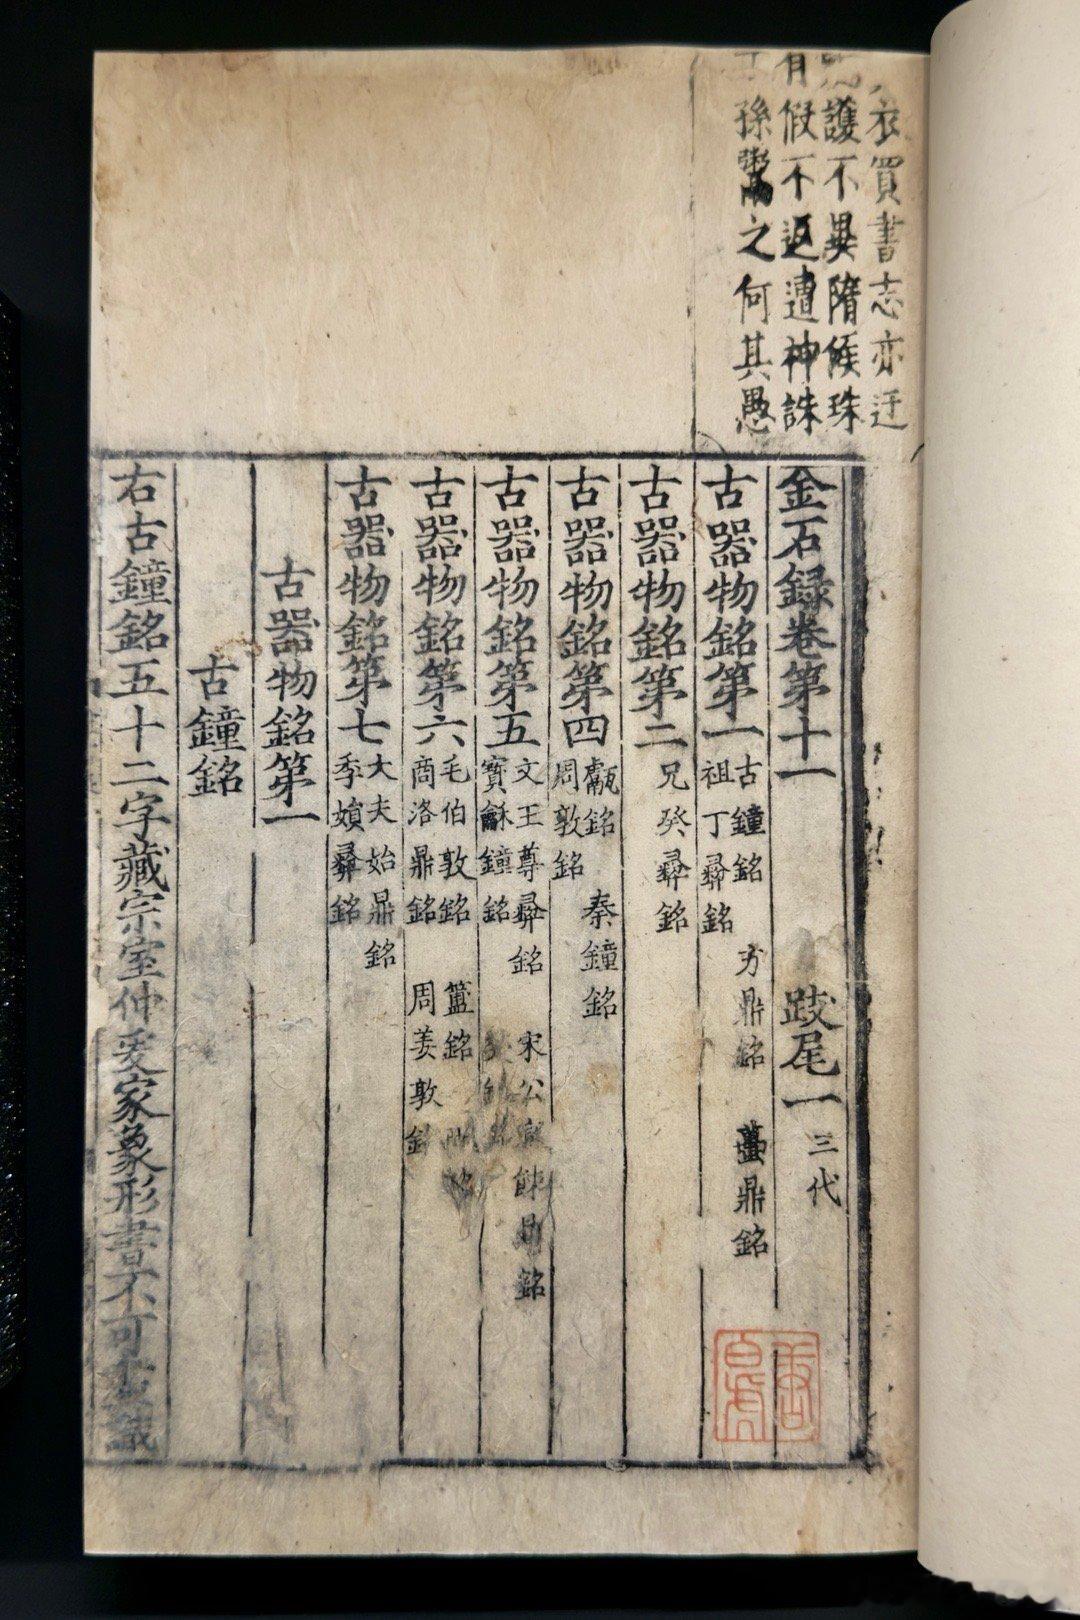 衣買書志亦迂
護不異隋候珠
有假不返遭神誅
孫鬻之何其愚
金石録卷第十一　跋尾一　三代
古器物銘第一　古鐘銘　方鼎銘　蠆鼎銘
祖丁彝銘
古器物銘第二　兄癸彝銘
古器物銘第四　甗銘　秦鐘銘
周敦銘
古器物銘第五　文王尊彝銘　宋公　餗鼎銘
寶龢鐘銘
古器物銘第六　毛伯敦銘　簠銘
商洛鼎銘　周姜敦銘
古器物銘第七　大夫始鼎銘
季媍彝銘
古器物銘第一
古鐘銘
右古鐘銘五十二字藏宗室仲爰家象形書不可盡識